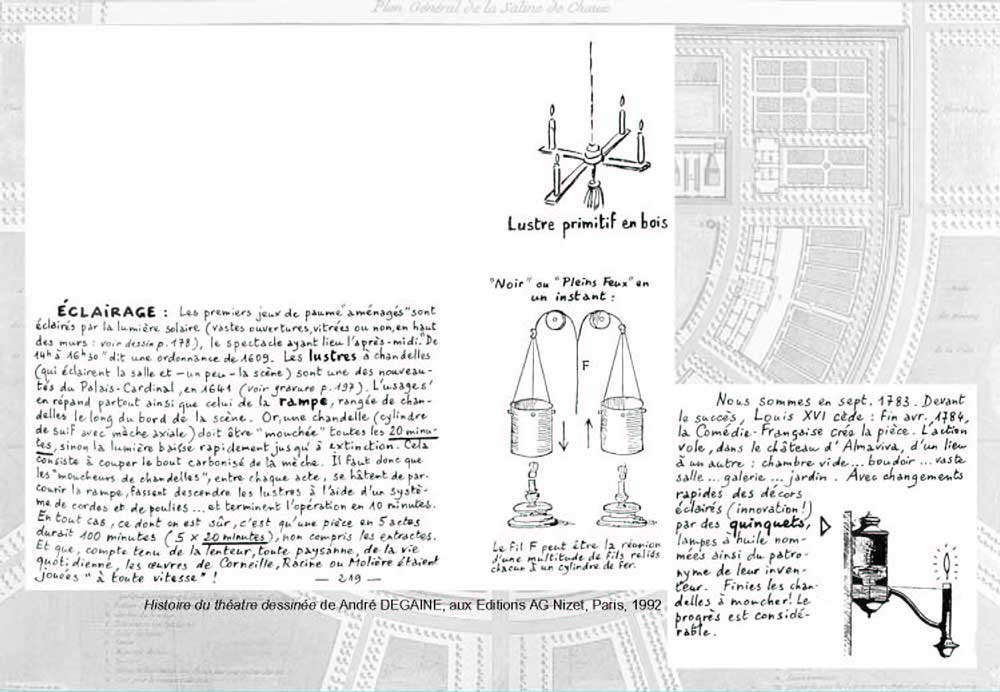 Plan Général de la Saline de Chaux
Lustre primitif en bois
"Noir" ou "Pleins Feux" en
un instant :
F
Le Fil F peut être la réunion
d'une multitude de fils reliés
chacun à un cylindre de fer.
ÉCLAIRAGE : Les premiers jeux de paume "aménagés" sont
éclairés par la lumière solaire (vastes ouvertures, vitrées ou non, en haut
des murs : voir dessin p. 178), le spectacle ayant lieu l'après-midi. "De
14h à 16h30" dit une ordonnance de 1609. Les lustres à chandelles
(qui éclairent la salle et - un peu - la scène) sont une des nouveau-
tés du Palais-Cardinal, en 1641 (voir gravure p. 197). L'usage s'
en répand partout ainsi que celui de la rampe, rangée de chan-
delles le long du bord de la scène. Or, une chandelle (cylindre
de suif avec mèche axiale) doit être "mouchée" toutes les 20 minu-
tes, sinon la lumière baisse rapidement jusqu'à extinction. Cela
consiste à couper le bout carbonisé de la mèche. Il faut donc que
les "moucheurs de chandelles", entre chaque acte, se hâtent de par-
courir la rampe, fassent descendre les lustres à l'aide d'un systè-
me de cordes et de poulies ... et terminent l'opération en 10 minutes.
En tout cas, ce dont on est sûr, c'est qu'une pièce en 5 actes
durait 100 minutes (5 x 20 minutes), non compris les entractes.
Et que, compte tenu de la lenteur, toute paysanne, de la vie
quotidienne, les œuvres de Corneille, Racine ou Molière étaient
jouées "à toute vitesse" !
— 219 —
Nous sommes en sept. 1783. Devant
le succès, Louis XVI cède : Fin avr. 1784,
la Comédie-Française crée la pièce. L'action
vole, dans le château d'Almaviva, d'un lieu
à un autre : chambre vide... boudoir ... vaste
salle ... galerie ... jardin . Avec changements
rapides des décors
éclairés (innovation!)
par des quinquets,
lampes à huile nom-
mées ainsi du patro-
nyme de leur inven-
teur. Finies les chan-
delles à moucher! Le
progrès est considé-
rable.
Histoire du théatre dessinée de André DEGAINE, aux Editions AG Nizet, Paris, 1992